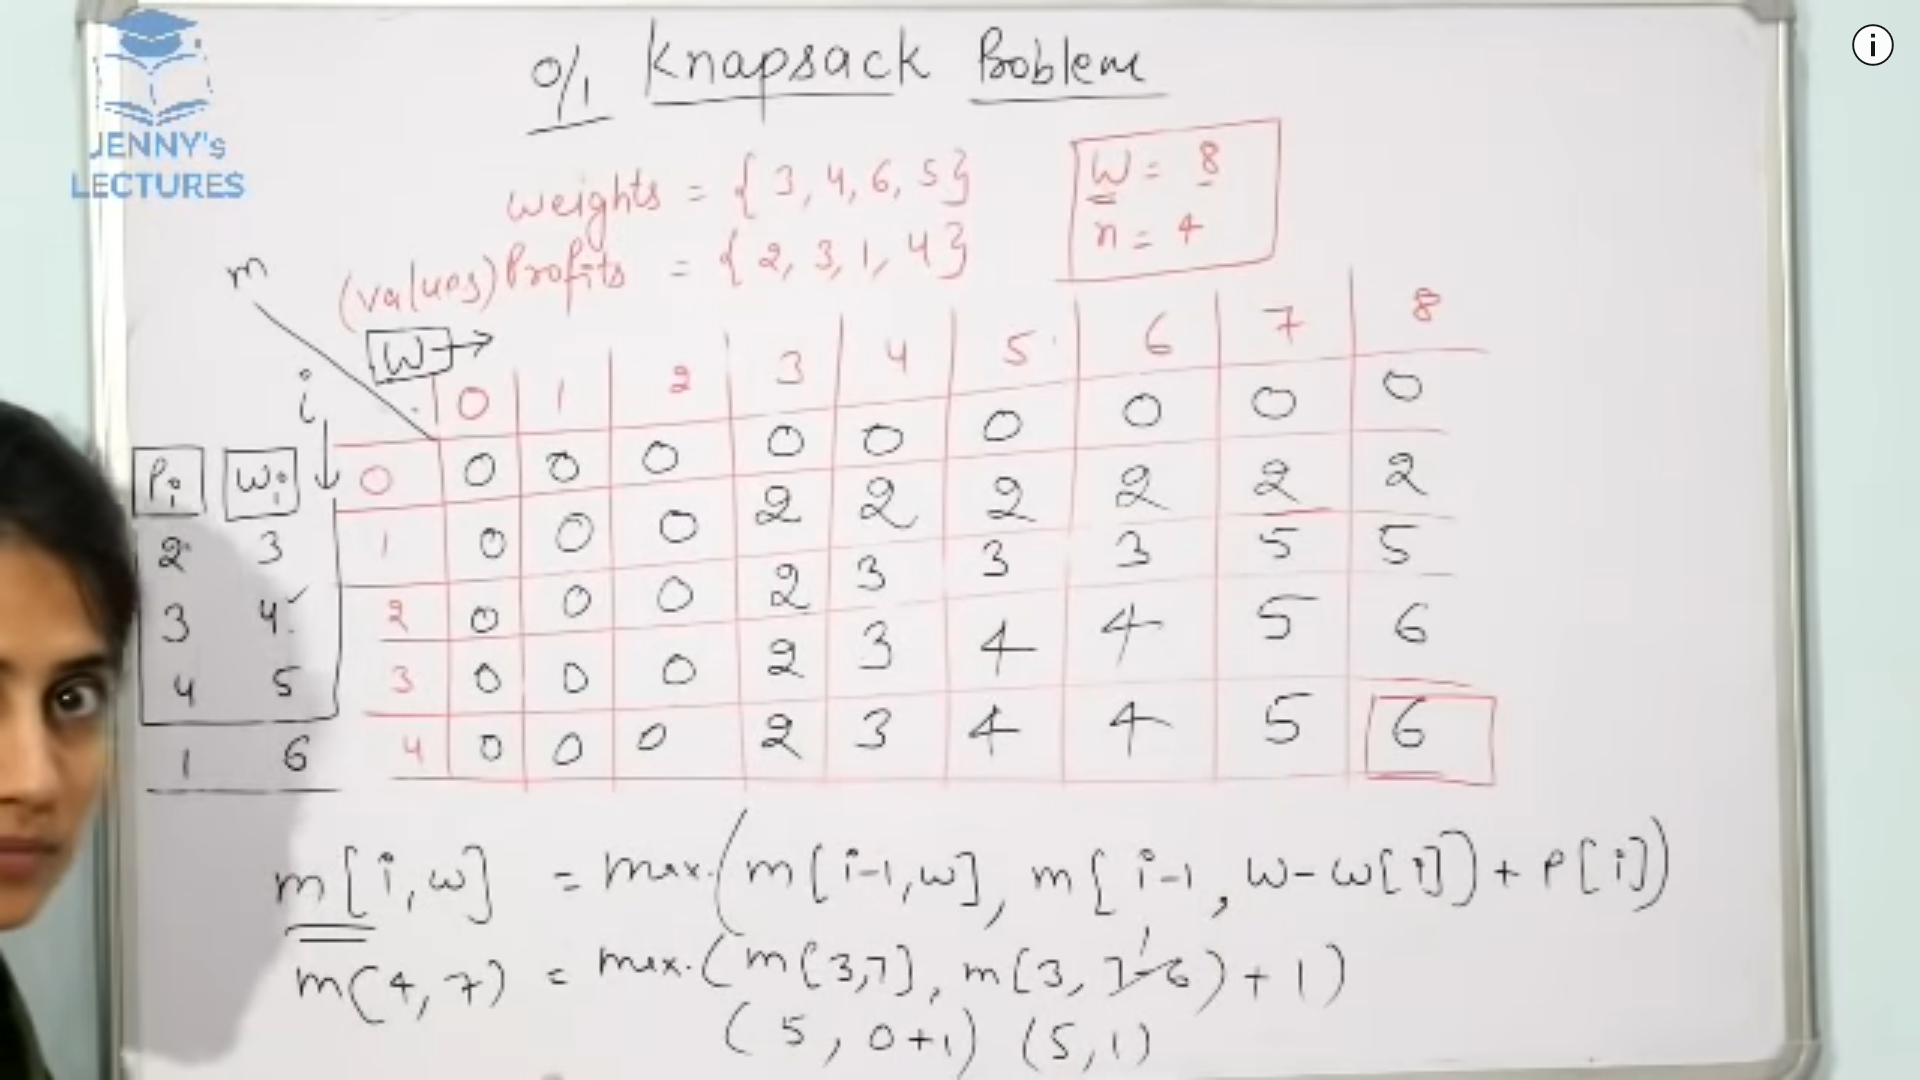 JENNY's
LECTURES
0/1 Knapsack Problem
weights = { 3, 4, 6, 5}
(values) Profits = { 2, 3, 1, 4}
W = 8
n = 4
m
W →
i
0 1 2 3 4 5 6 7 8
Pi Wi
0 0 0 0 0 0 0 0 0 0
2 3 1 0 0 0 2 2 2 2 2 2
3 4 2 0 0 0 2 3 3 3 5 5
4 5 3 0 0 0 2 3 4 4 5 6
1 6 4 0 0 0 2 3 4 4 5 6
m[i,w] = max.(m[i-1,w], m[i-1, w-w[i]) + P[i])
m(4,7) = max.(m(3,7], m[3, 7-6) + 1)
1
(5, 0+1) (5,1)